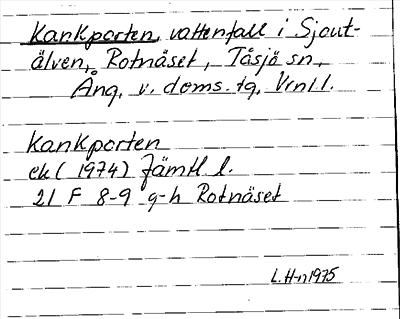 Kankporten, vattenfall i Sjout-
älven, Rotnäset, Tåsjö sn,
Ång. v. doms. tg, Vrnll.
Kankporten
ek (1974) Jämtl. l.
21 F 8-9 g-h Rotnäset
L. H-n 1975